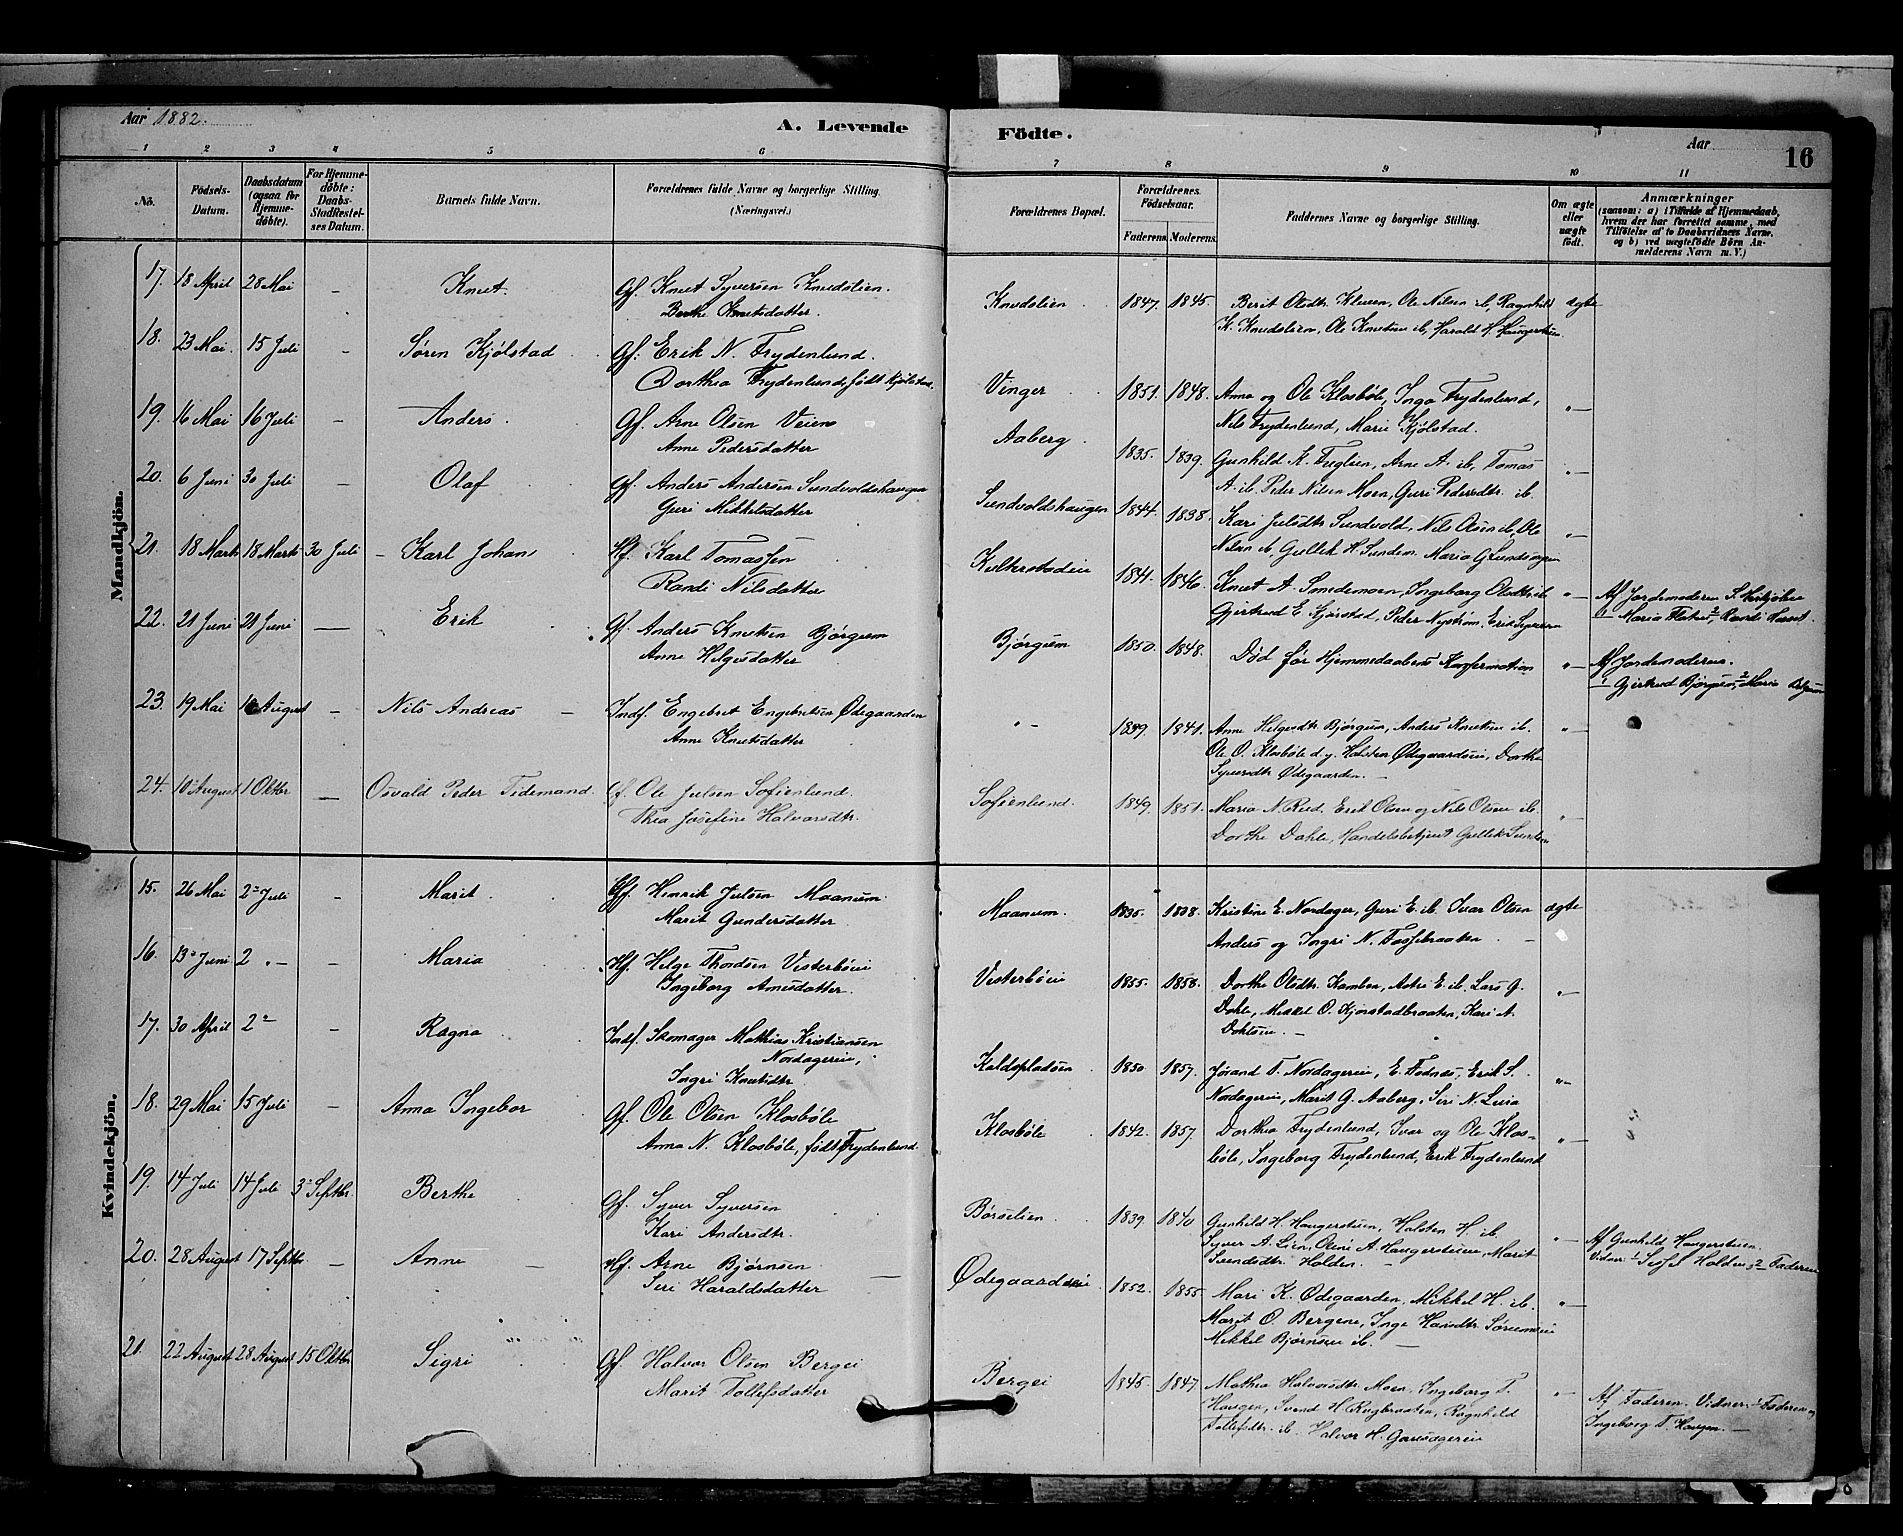 Aar 1882.
A. Levende Födte.
Aar 16
1 2 3 4 5 6 7 8 9 10 11
No.
Födsels-Datum.
Daabsdatum (ogsaa for Hjemmedöbte).
For Hjemmedöbte: Daabs-Stadfestelses Datum.
Barnets fulde Navn.
Forældrenes fulde Navne og borgerlige Stilling. (Næringsvei.)
Forældrenes Bopæl.
Forældrenes Födselsaar.
Faderens. Moderens.
Faddernes Navne og borgerlige Stilling.
Om ægte eller uægte födt.
Anmærkninger
(saasom: a) i Tilfælde af Hjemmedaab,
hvem der har forrettet samme, med
Tilföielse af to Daabsvidners Navne,
og b) ved uægtefödte Börn Anmelderens Navn m. V.)
Mandkjön.
17. 18 April 28 Mai - Knut. Gf. Knut Syversen Knudslien. Knudslien 1847. 1845. Berit Olsdtr. Kluven, Ole Nilsen ib, Ragnhild ægte
Berthe Knutsdatter. K. Knudslien, Ole Knutsen ib, Harald H. Haugerstuen
18. 23 Mai. 15 Juli - Søren Kjölstad Gf. Erik N. Frydenlund. Vinger 1851. 1848. Anna og Ole Klosböle, Inga Frydenlund, "-
Dorthea Frydenlund, født Kjölstad. Nils Frydenlund, Marie Kjölstad.
19. 16 Mai 16 Juli - Anders. Gf. Arne Olsen Veien Aaberg 1835. 1839. Gunhild K. Fuglien, Arne A. ib, Tomas "-
Anne Pedersdatter A. ib. Peder Nilsen Moen, Guri Pedersdtr. ib.
20. 6 Juni 30 Juli - Olaf Gf. Anders Andersen Sundvoldshaugen Sundvoldshaugen 1844. 1838. Kari Julsdtr. Sundvold, Nils Olsen ib, Ole "-
Guri Mikkelsdatter Nilsen ib, Gullik H. Sunden. Maria G.
21. 18 Marts 18 Marts 30 Juli - Karl Johan Hf. Karl Tomassen 1841. 1846. Knut A. Smedemoen, Ingeborg Olsdtr. ib "- Af Jordemoderen S.
Randi Nilsdatter Gjertrud E. Gjörstad, Peder Nyström, Erik Syversen 1 Maria 2 Randi
22. 21 Juni 21 Juni - Erik Gf. Anders Knutsen Björgum Björgum 1850. 1848. Død før Hjemmedaabens Konfirmation "- Af Jordemoderen.
Anne Helgesdatter 1 Gjertrud Björgum, 2 Maria
23. 19 Mai August - Nils Andreas - Indf. Engebret Engebretsen Ødegaarden "- 1839. 1841. Anne Helgesdtr. Björgum, Anders Knutsen ib. "-
Anne Knutsdatter Ole O. Klosböle d. y. Halsten Ødegaardseie, Dorthe
Syversdtr Ødegaarden. -
24. 10 August 1 Oktbr - Osvald Peder Tidemand. Gf. Ole Julsen Sofienlund. Sofienlund. 1849. 1851. Maria N. Rud. Erik Olsen og Nils Olsen ib. "-
Thea Josefine Halvorsdtr. Dorthe Dahle, Handelsbetjent Gullik Sunden
Kvindekjön.
15. 26 Mai 2 Juli - Marit Gf. Henrik Julsen Maanum. Maanum. 1835. 1838. Kristine E. Nordager, Guri E. ib. Ivar Olsen ægte
Marit Gundersdatter. Anders og Ingri N. Fossebraaten. -
16. 13 Juni 2 "- - Maria Hf. Helge Thordsen Vesterböeie Vesterböeie 1855. 1858. Dorthe Olsdtr. Kamben, Astri E. ib. Lars G. "-
Ingeborg Arnesdatter. Dahle, Mikkel O. Kjorstadbraaten, Kari A.
17. 30 April 2 " - Ragna Indf. Skomager Mathias Kristiansen Koldsplasen 1850. 1857. Jørand T. Nordagereie, E. Fodnæs, Erik S. "-
Nordagereie, Nordagereie, Marit G. Aaberg, Siri N.
Ingri Knutsdtr.
18. 29 Mai 15 Juli - Anna Ingebor Gf. Ole Olsen Klosböle Klosböle 1842. 1857. Dorthea Frydenlund, Ivar og Ole Klos- "-
Anna N. Klosböle, født Frydenlund böle, Ingeborg Frydenlund, Erik Frydenlund
19. 14 Juli 14 Juli 3 Septbr. Berthe Gf. Syver Syversen Börselien 1839. 1840 Gunhild H. Haugerstuen, Halsten H. ib. "- Af Gunhild Haugerstuen.
Kari Andersdtr. Syver A. Lien, Oline A. Haugerstuen, Marit Vidner: 1 Sissel Holden, 2 Faderen
Svendsdtr. Holden. -
20. 28 August 17 Septbr. - Anne Hf. Arne Björnsen Ødegaardseie 1852. 1855 Mari K. Ødegaarden, Mikkel H. ib. "-
Siri Haraldsdatter Marit O. Bergene, Inge Hansdtr. Sörumseie
Mikkel Björnsen ib. -
21. 22 August 28 August 15 Oktbr Sigri Gf. Halvor Olsen Bergei Bergei 1845 1847 Mathea Halvorsdtr. Moen, Ingeborg T. "- Af Faderen. Vidner: 1 Faderen og
Marit Tollefsdatter Haugen, Svend H. Rugbraaten, Ragnhild Ingeborg T. Haugen. -
Tollefsdtr. ib. Halvor H.